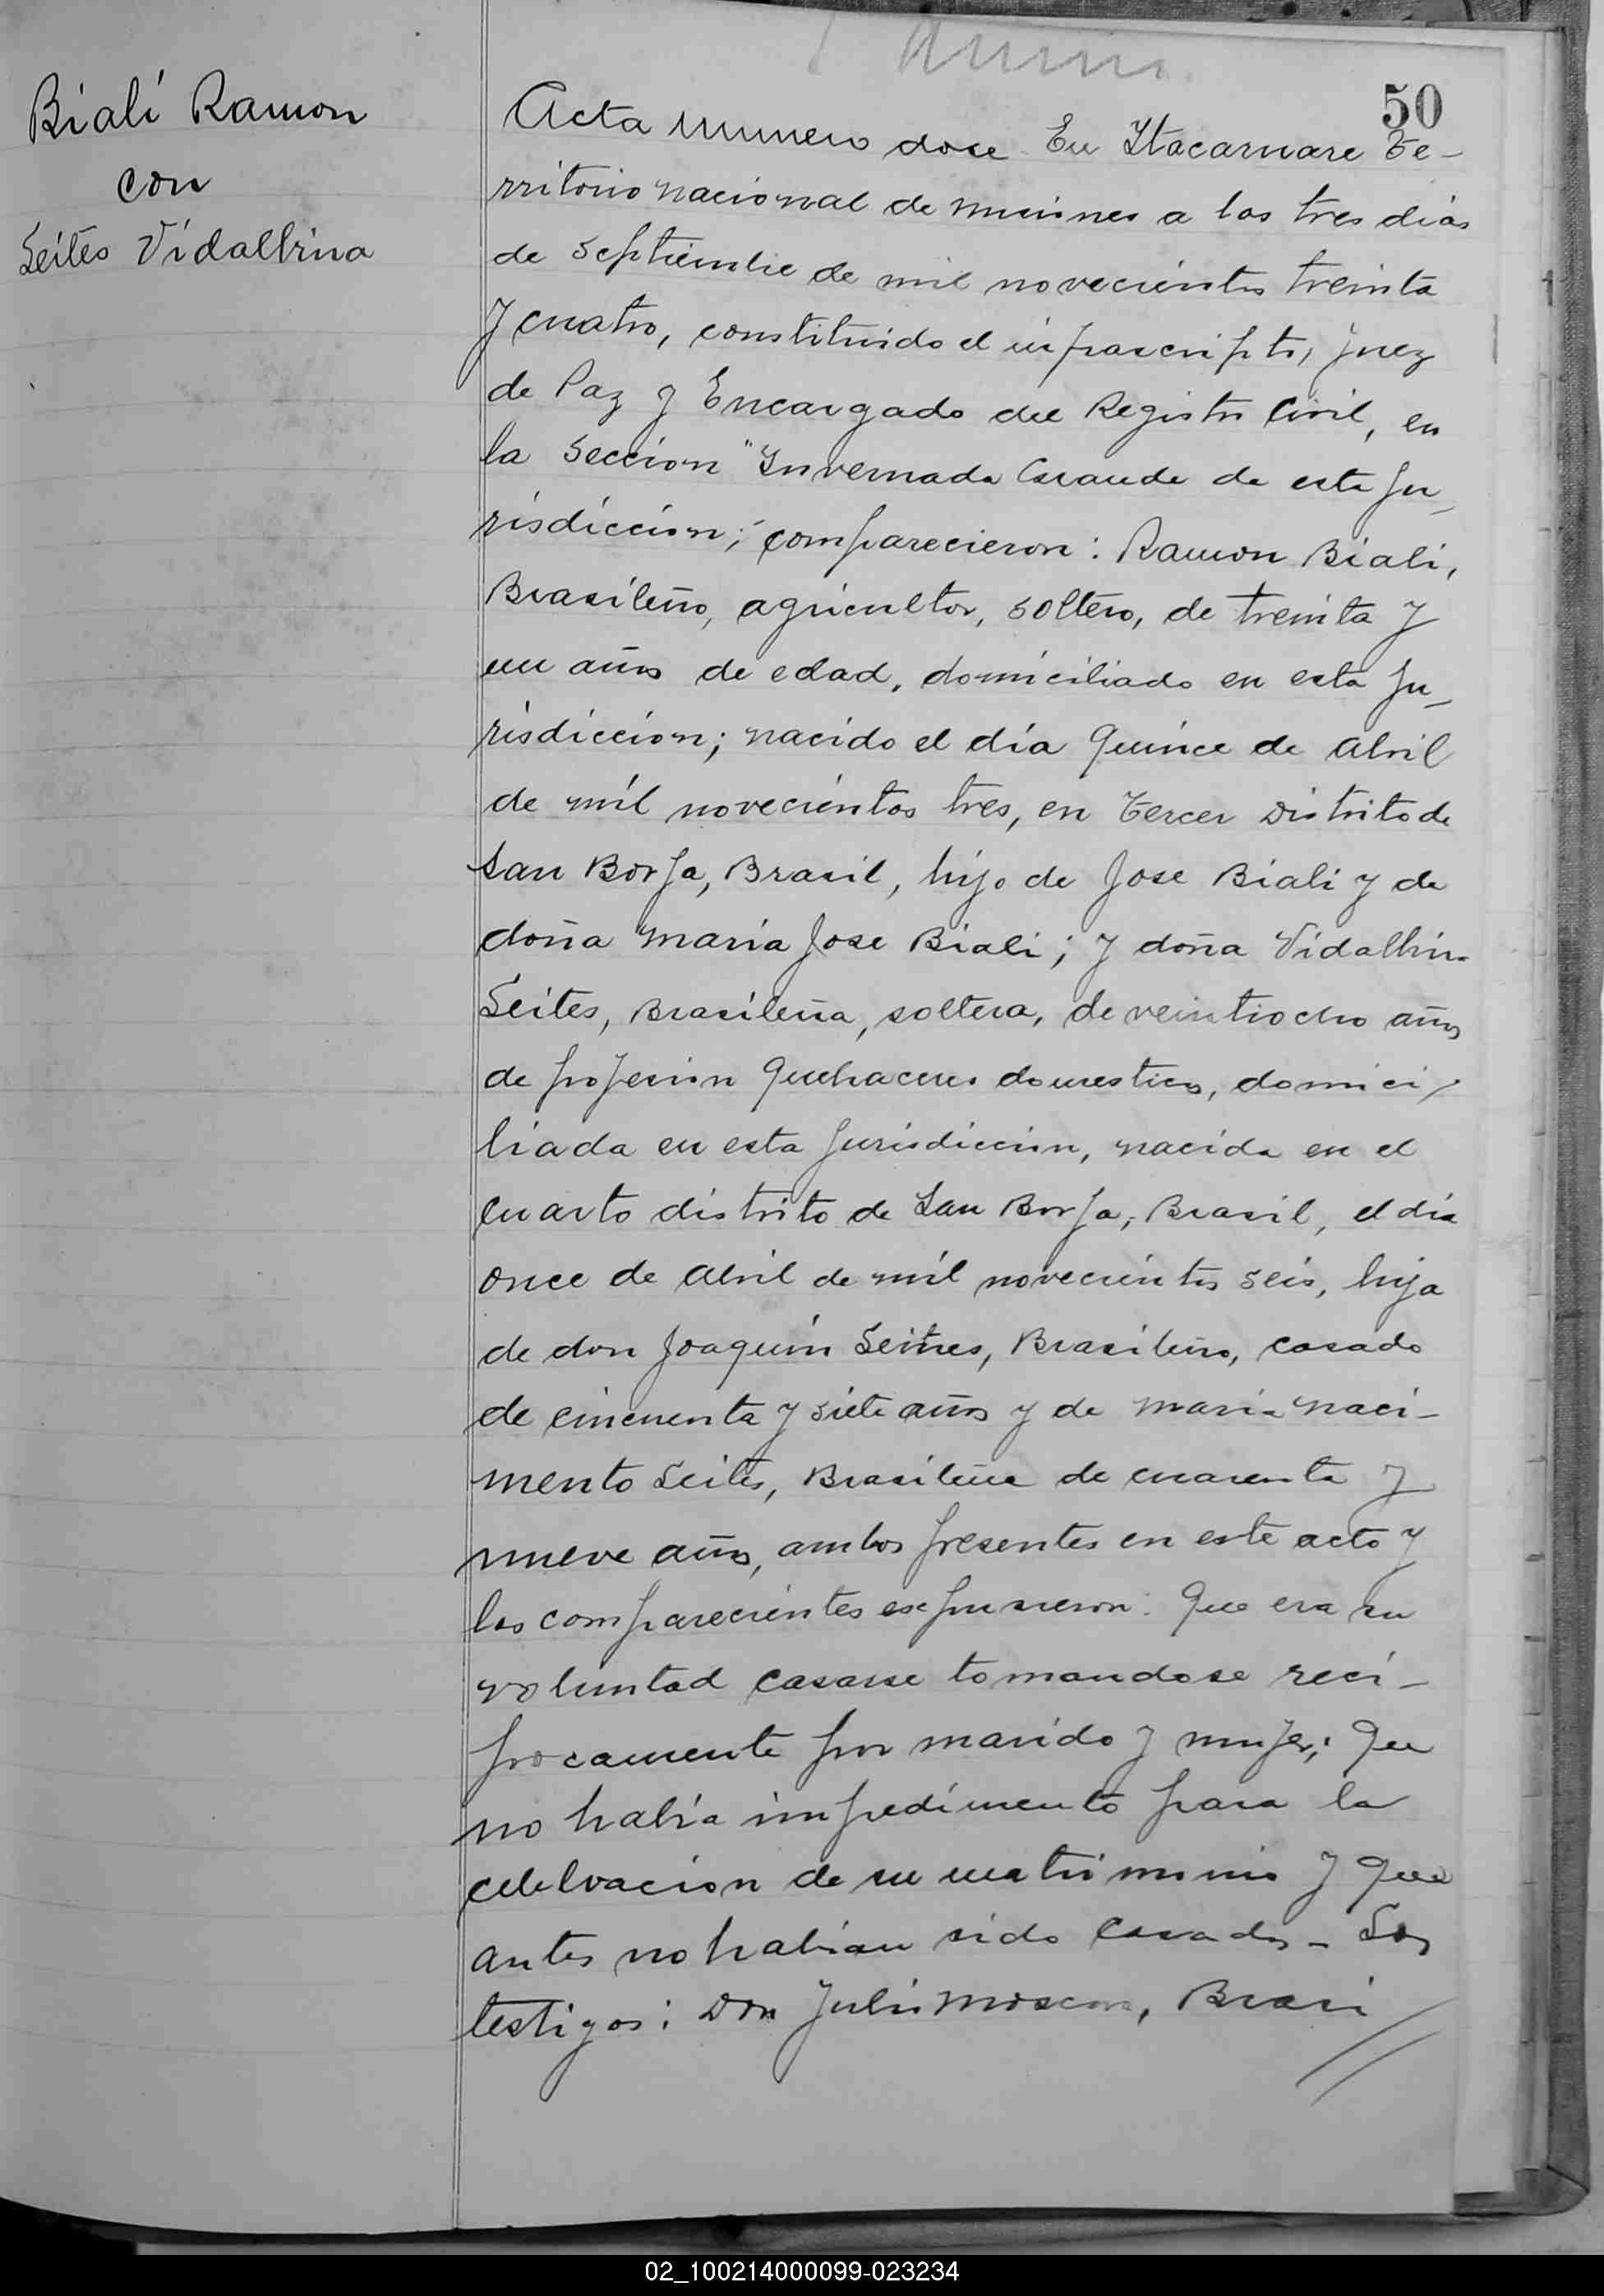 50
Biali Ramon
con
Seites Vidalbina
Acta numero doce En Itacaruare Te-
rritorio nacional de misiones a los tres dias
de septiembre de mil novecientos treinta
y cuatro, constituido el infrascripto, Juez
de Paz y Encargado del Registro Civil, en
la Seccion "Invernada Grande de esta Ju_
risdiccion; comparecieron: Ramon Biali,
Brasileño, agricultor, soltero, de treinta y
un años de edad, domiciliado en esta Ju_
risdiccion; nacido el día quince de abril
de mil novecientos tres, en Tercer Distrito de
San Borja, Brasil, hijo de Jose Biali y de
doña Maria Jose Biali; y doña Vidalbina
Seites, Brasileña, soltera, de veintiocho años
de profesion quehaceres domesticos, domici-
liada en esta Jurisdiccion, nacida en el
cuarto distrito de San Borja, Brasil, el dia
once de abril de mil novecientos seis, hija
de don Joaquin Seites, Brasileño, casado
de cincuenta y siete años y de maria naci-
mento Seites, Brasileña de cuarenta y
nueve años, ambos presentes en este acto y
los comparecientes expusieron: Que era su
voluntad casarse tomandose reci-
procamente por marido y mujer; Que
no había impedimento para la
celebracion de su matrimonio y que
antes no habian sido casados - Los
testigos: Don Julio, Brasi
//
02_100214000099-023234